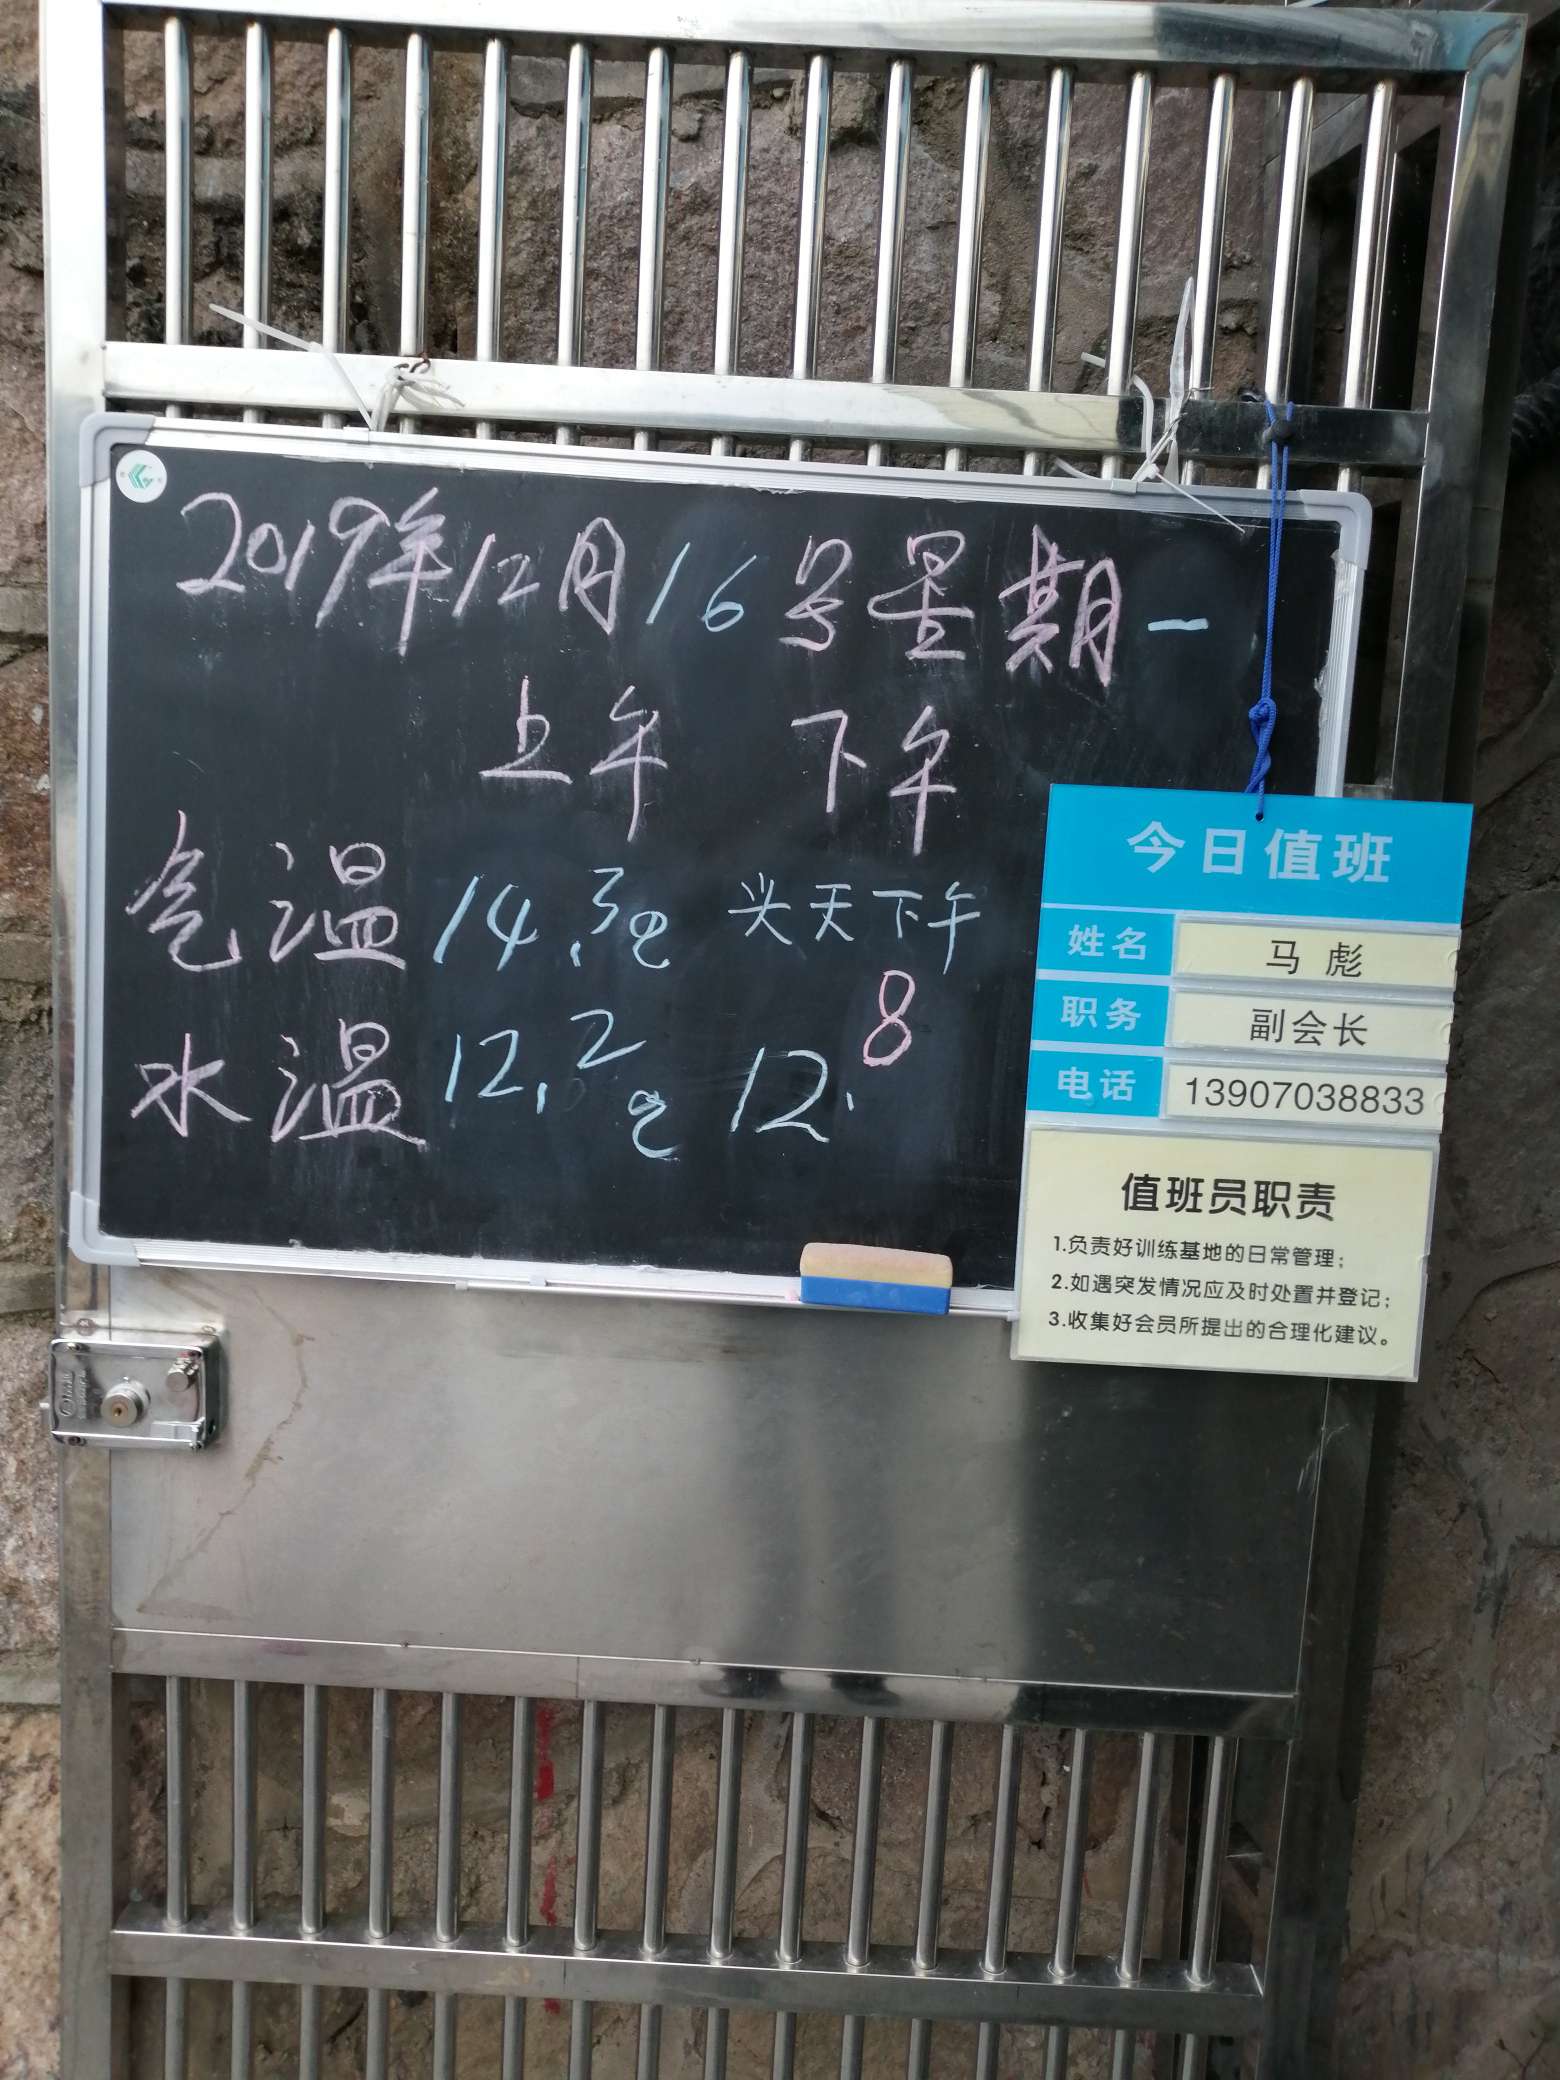 2019年12月16号星期一
上午 下午
气温 14.3℃ 头天下午
水温 12.2℃ 12.8
今日值班
姓名 马彪
职务 副会长
电话 13907038833
值班员职责
1.负责好训练基地的日常管理;
2.如遇突发情况应及时处置并登记;
3.收集好会员所提出的合理化建议。